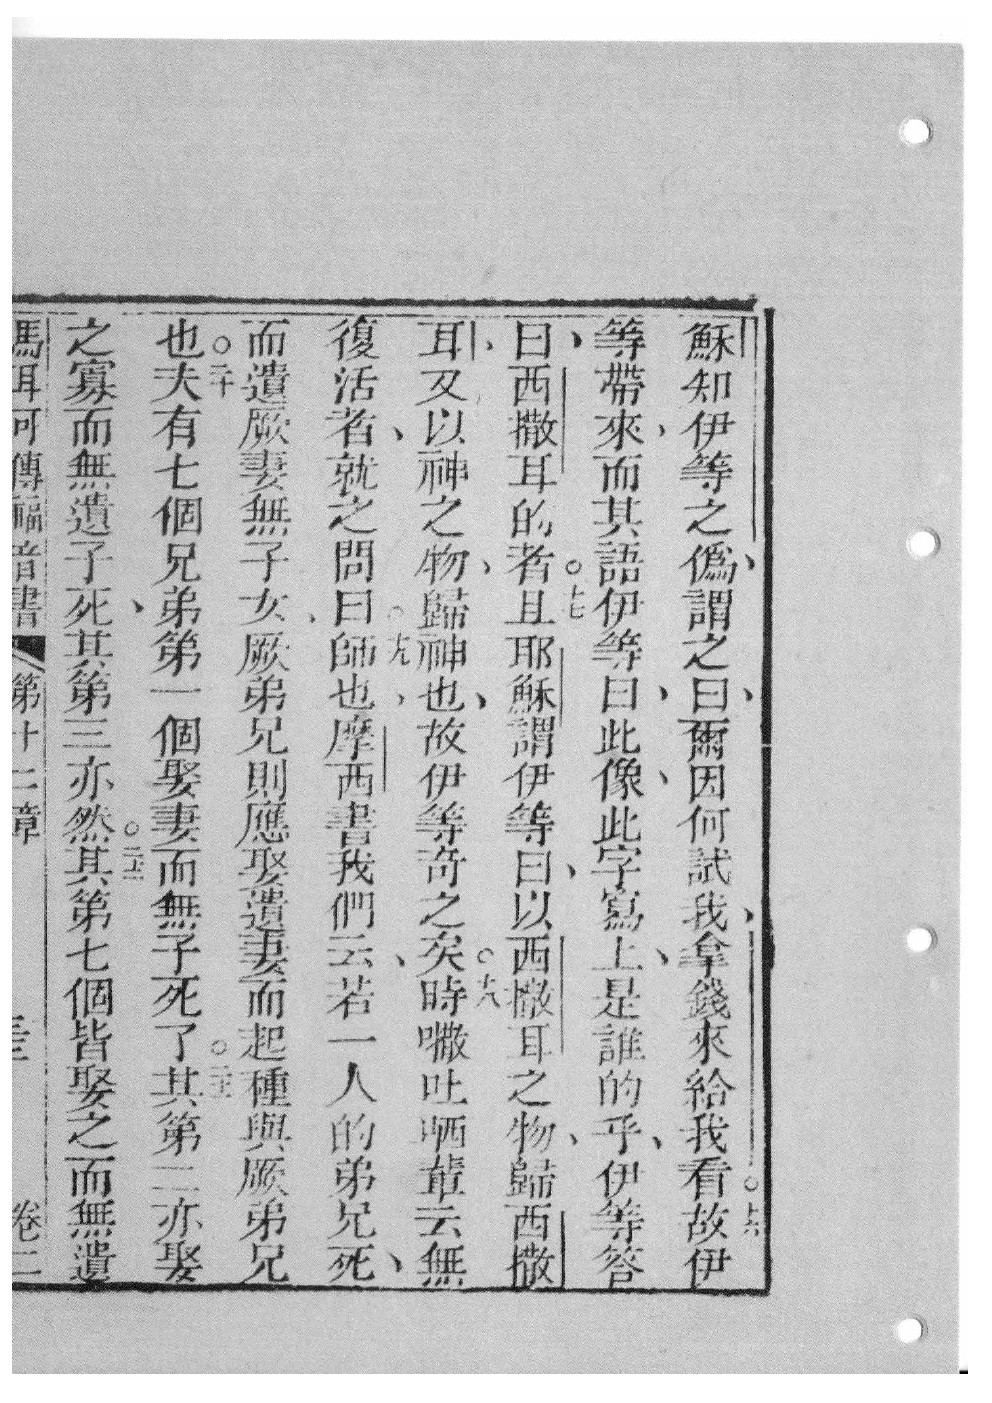 穌知伊等之僞、謂之曰、爾因何試我、拿錢來給我看。十六故伊
等帶來、而其語伊等曰、此像、此字寫上、是誰的乎、伊等答
曰、西撒耳的者。十七且耶穌謂伊等曰、以西撒耳之物、歸西撒
耳、又以神之物、歸神也、故伊等奇之矣。十八時㘔吐哂輩云無
復活者、就之問曰。十九師也、摩西書我們云、若一人的弟兄死、
而遺厥妻無子女、厥弟兄則應娶遺妻而起種與厥弟兄
也。二十夫有七個兄弟第一個娶妻而無子死了。二十一其第二亦娶
之寡而無遺子死、其第三亦然。二十二其第七個皆娶之而無遺
馬耳可傳福音書 第十二章 卷二